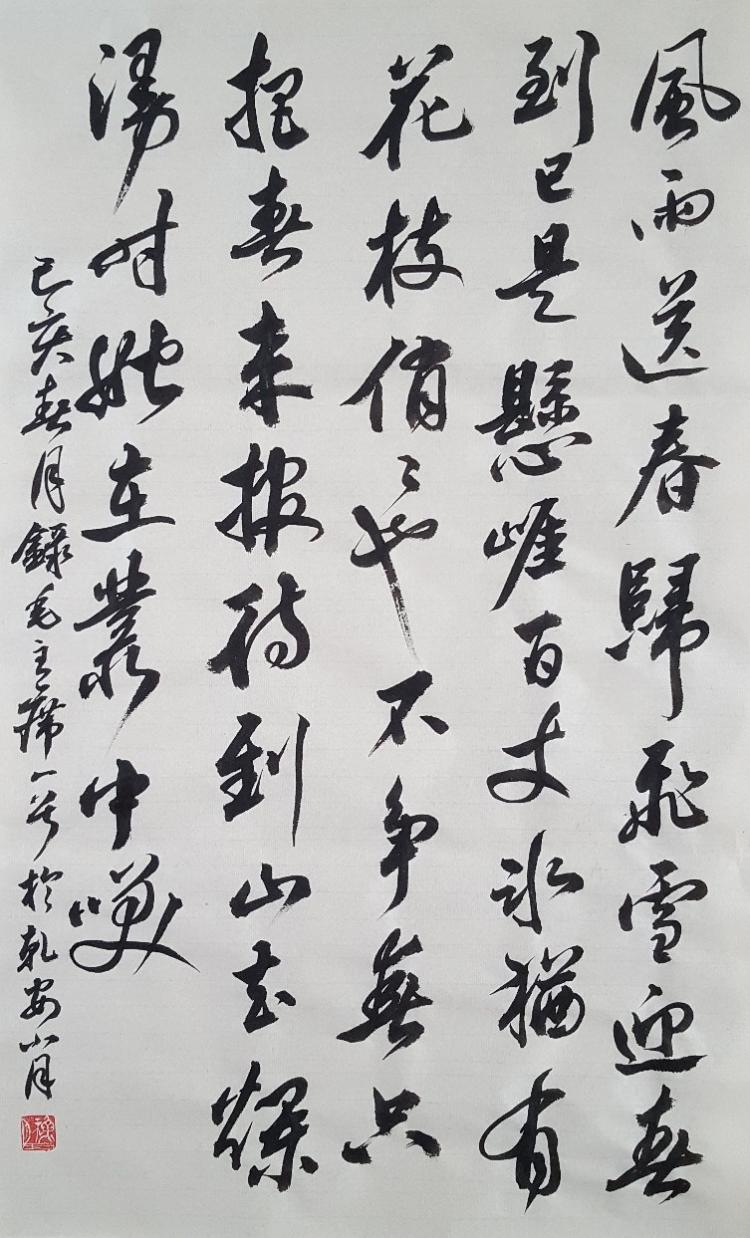 風雨送春歸飛雪迎春
到已是懸崖百丈冰猶有
花枝俏〻也不争春只
把春来報待到山花爛
漫时她在叢中咲
己亥春月錄毛主席一首於乾安小月